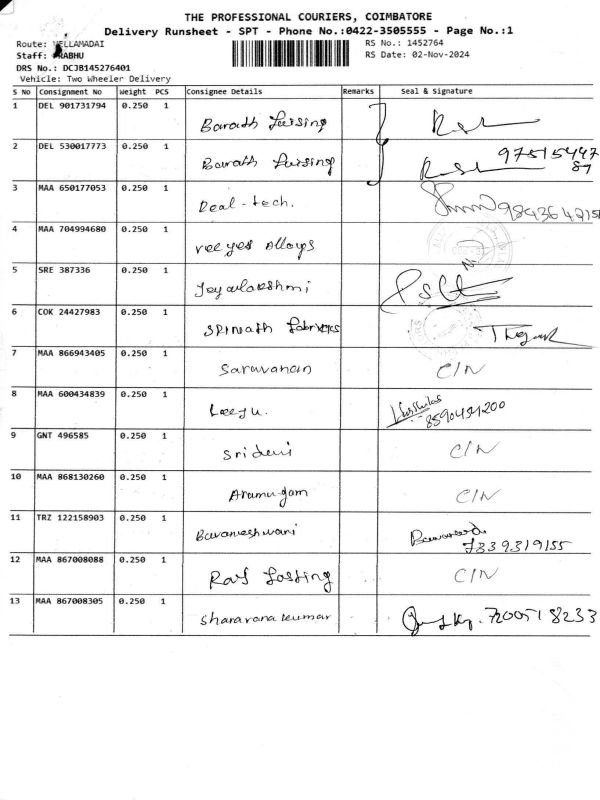 THE PROFESSIONAL COURIERS, COIMBATORE
Delivery Runsheet - SPT - Phone No.:0422-3505555 - Page No.:1
Route: VELLAMADAI
RS No.: 1452764
Staff: PRABHU
RS Date: 02-Nov-2024
DRS No.: DCJB145276401
Vehicle: Two Wheeler Delivery
S No Consignment No Weight PCS Consignee Details Remarks Seal & Signature
1 DEL 901731794 0.250 1 Barath
2 DEL 530017773 0.250 1 Barath 97515447
87
3 MAA 650177053 0.250 1 Deal-tech. 9843642151
4 MAA 704994680 0.250 1 veeyes Alloys
5 SRE 387336 0.250 1 Jeyalakshmi
6 COK 24427983 0.250 1 Srinath Fabrics
7 MAA 866943405 0.250 1 Saravanan C/N
8 MAA 600434839 0.250 1 Leeju.
9 GNT 496585 0.250 1 Sridevi C/N
10 MAA 868130260 0.250 1 Arumugam C/N
11 TRZ 122158903 0.250 1 Bavaneshwari
7339319155
12 MAA 867008088 0.250 1 C/N
13 MAA 867008305 0.250 1 Sharavana kumar 7200518233